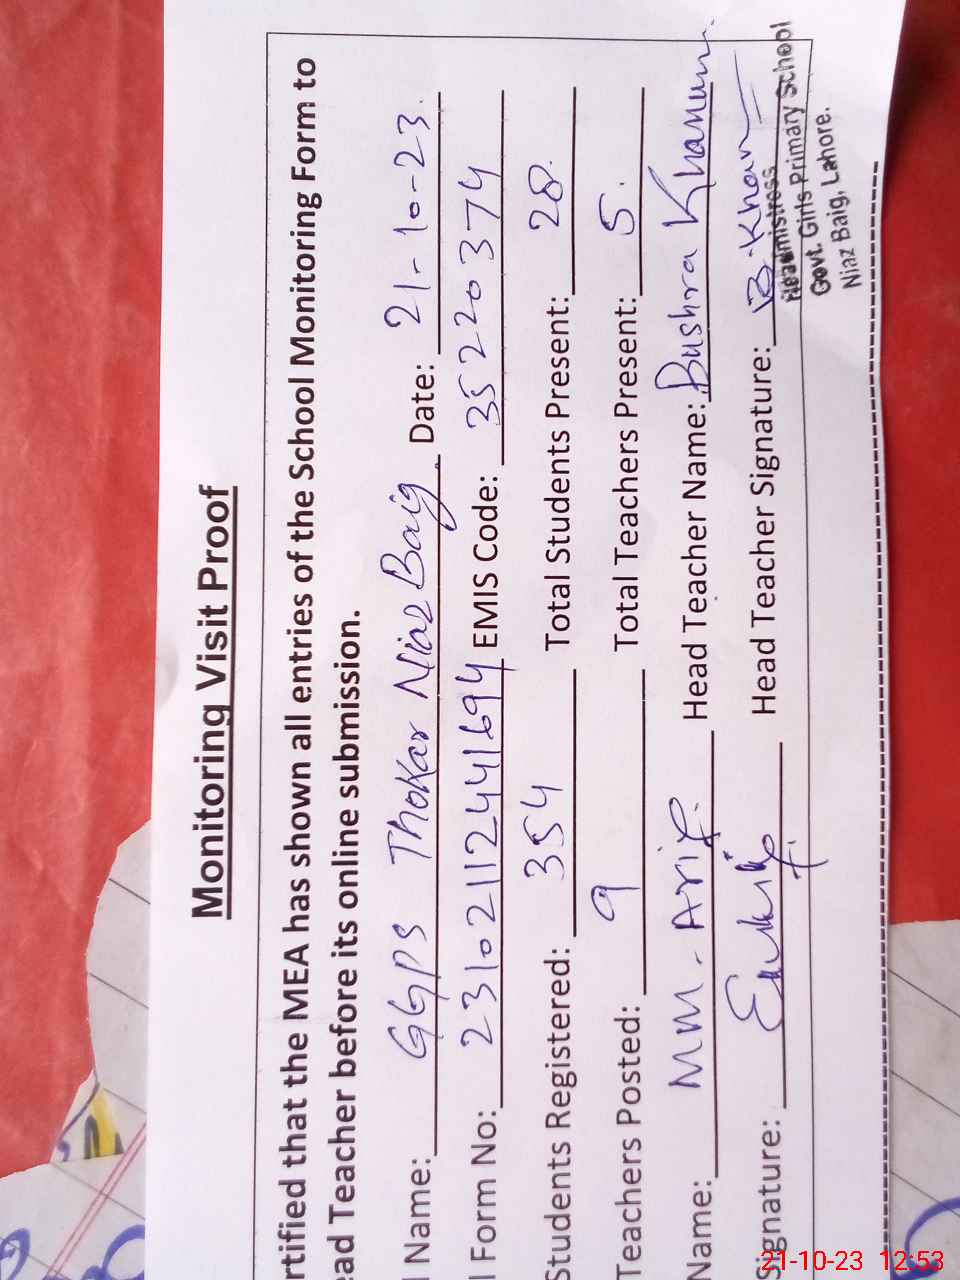 Monitoring Visit Proof
rtified that the MEA has shown all entries of the School Monitoring Form to
ead Teacher before its online submission.
l Name: GGPS Thokar Niaz Baig Date: 21-10-23
l Form No: 23102112441694 EMIS Code: 35220374
Students Registered: 354 Total Students Present: 28
Teachers Posted: 9 Total Teachers Present: 5
Name: MM. Arif Head Teacher Name: Bushra Khanum
Signature: Head Teacher Signature: B.Khan
Headmistress
Govt. Girls Primary School
Niaz Baig, Lahore.
21-10-23 12:53